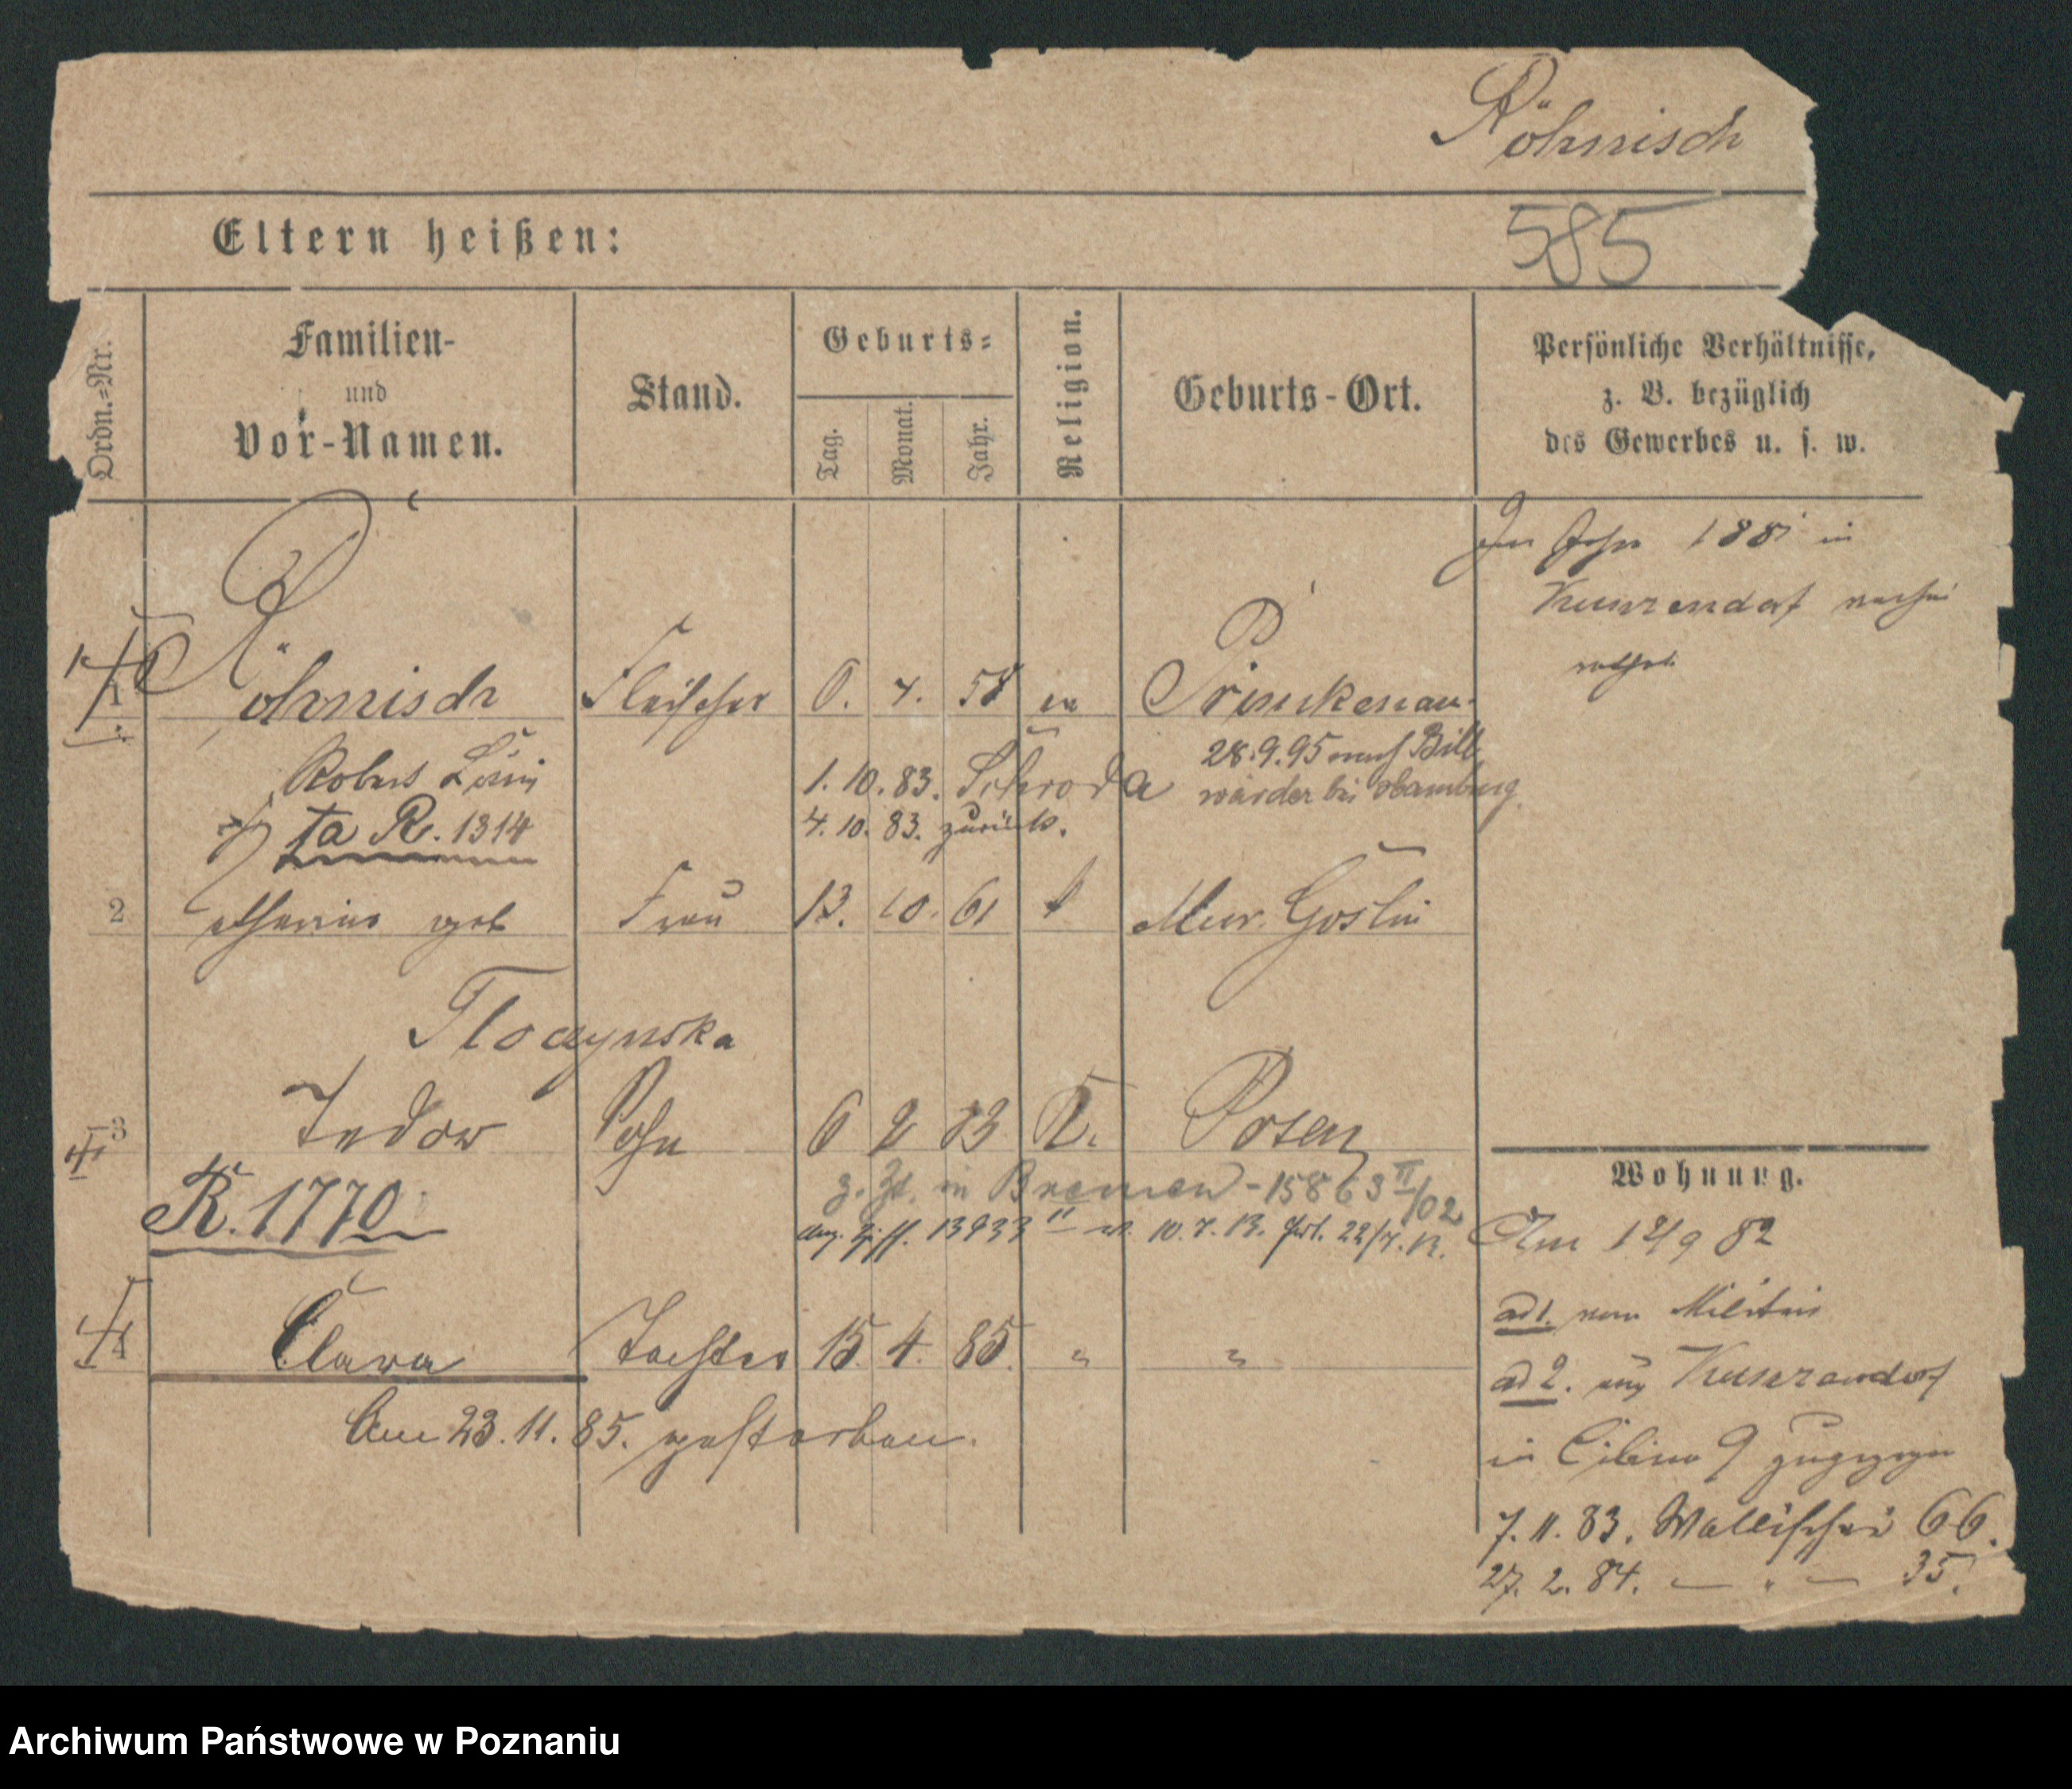 Röhnisch
Eltern heißen:
585
Ordn.-Nr.
Familien-
und
Vor-Namen.
Stand.
Geburts-
Tag.
Monat.
Jahr.
Religion.
Geburts-Ort.
Persönliche Verhältnisse,
z. B. bezüglich
des Gewerbes u. s. w.
Im Jahr 188 in
Kunzendorf
1 Röhnisch Fleischer 6. 4. 58 ev Primkenau.
Robert Louis
1. 10. 83. Schroda
4. 10. 83. zurück.
28.9.95 nach Bill
wärder bei Hamburg.
ta R. 1314
2 geb Frau 13. 10. 61 k Mur. Goslin
Tloczynska
3 Isidor Sohn 6 2 83 K. Posen
R. 1770
z. Zt. in Bremen - 15863 II/02
13933 10.7.13. 22/7.13.
4 Clara Tochter 15. 4. 85. " "
Am 23. 11. 85. gestorben.
Wohnung.
Am 12/9 82
ad 1. vom Militair
ad 2. aus Kunzendorf
in 9 zugezogen
7. 11. 83. Wallischei 66.
27. 2. 84. — " — 35.
Archiwum Państwowe w Poznaniu